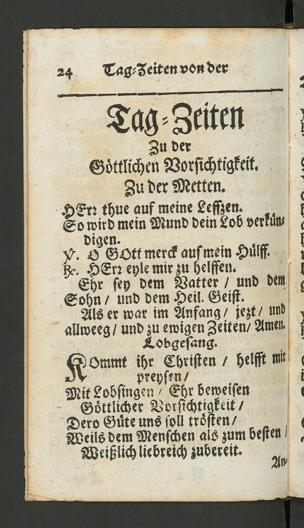 24 Tag-Zeiten von der
Tag-Zeiten
Zu der
Göttlichen Vorsichtigkeit.
Zu der Metten.
HErr thue auf meine Leffzen.
So wird mein Mund dein Lob verkün-
digen.
℣. O GOtt merck auf mein Hülff.
℟. HErr eyle mir zu helffen.
Ehr sey dem Vatter / und dem
Sohn / und dem Heil. Geist.
Als er war im Anfang / jezt / und
allweeg / und zu ewigen Zeiten / Amen.
Lobgesang.
KOmmt ihr Christen / helfft mir
preysen /
Mit Lobsingen / Ehr beweisen
Göttlicher Vorsichtigkeit /
Dero Güte uns soll trösten /
Weils dem Menschen als zum besten /
Weißlich liebreich zubereit.
An-